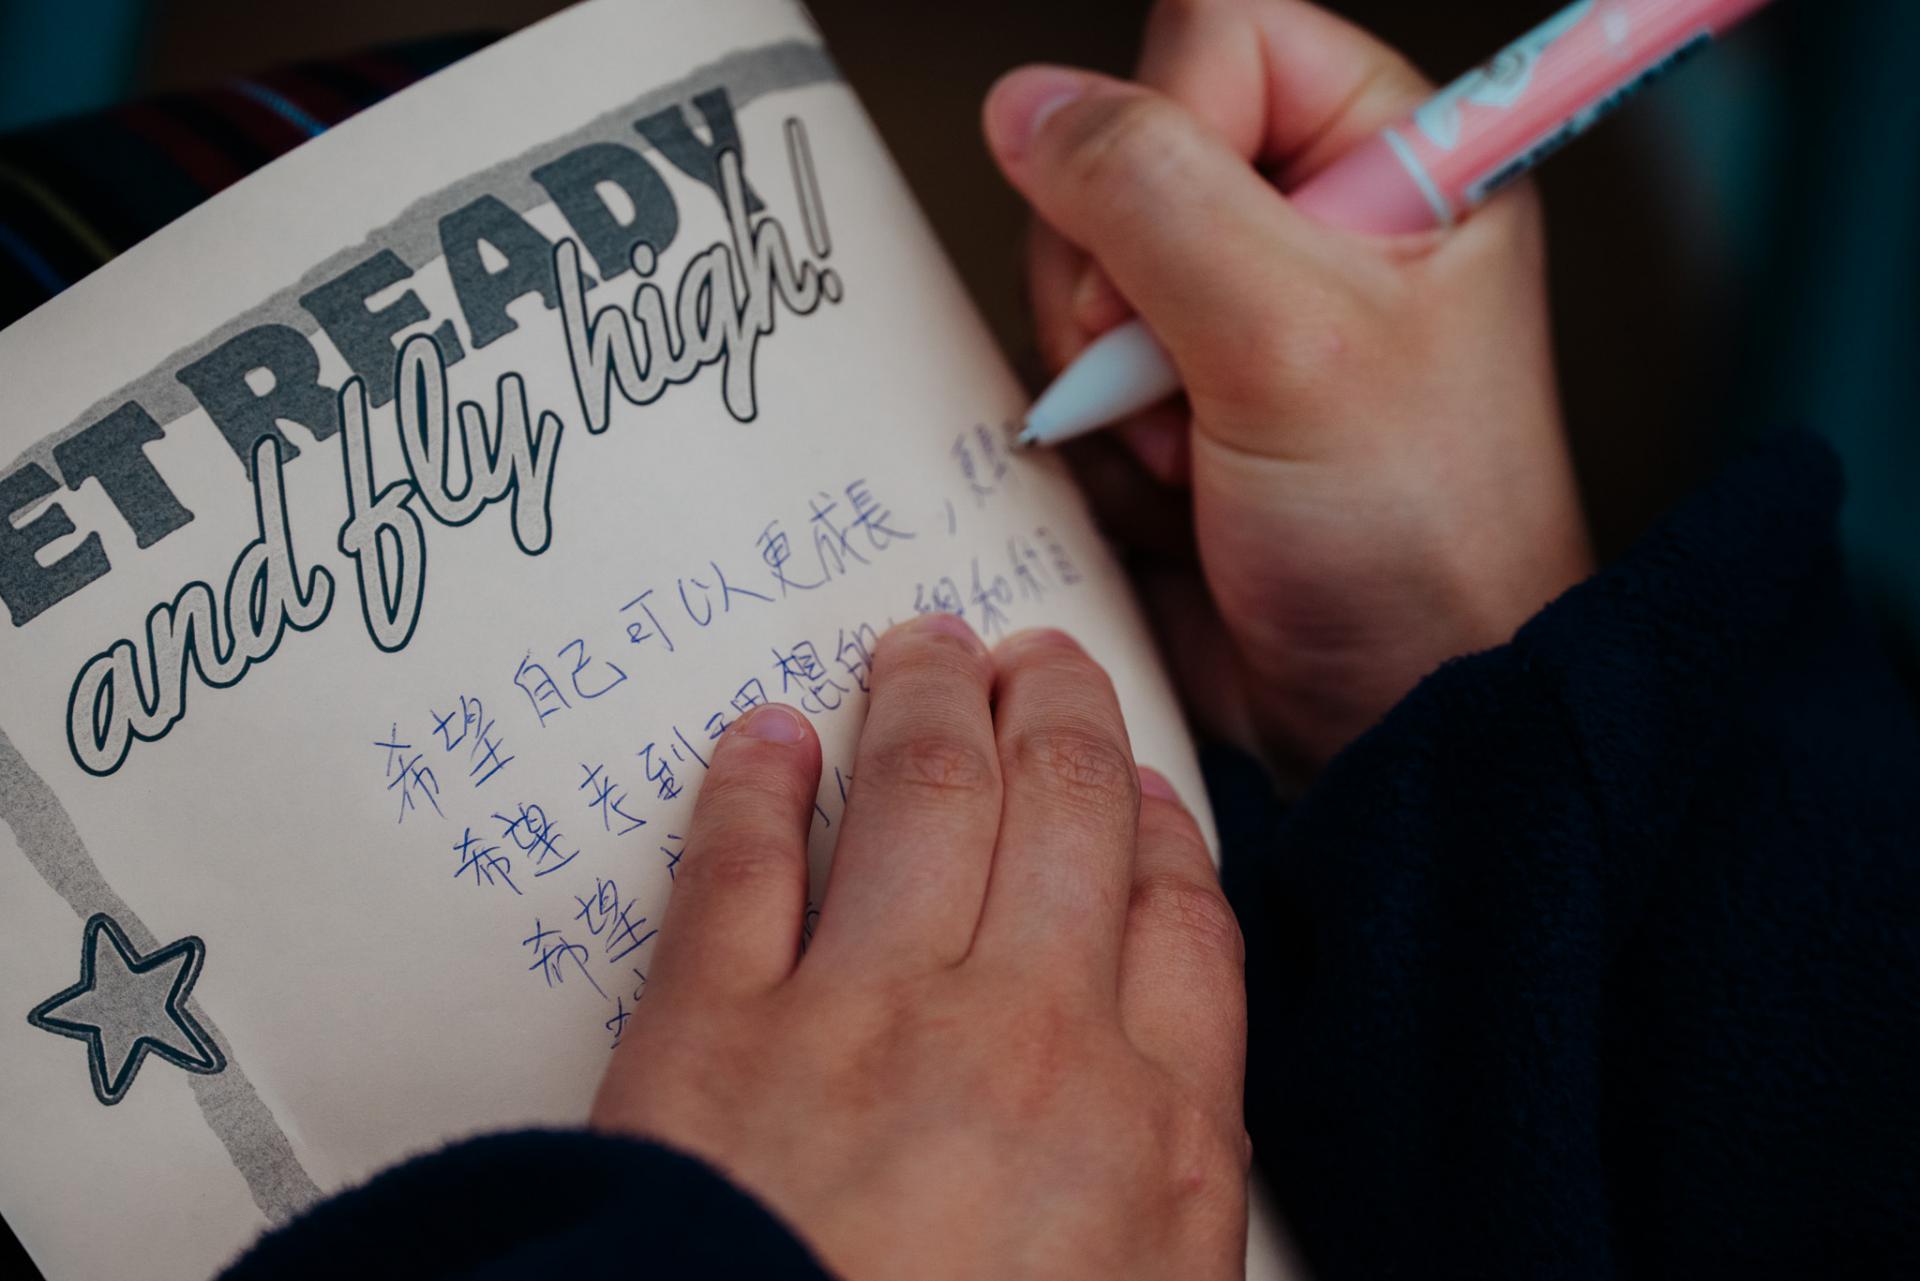 ET READY
and fly high!
希望自己可以更成長，更
希望考到理想的 和信
希望
希